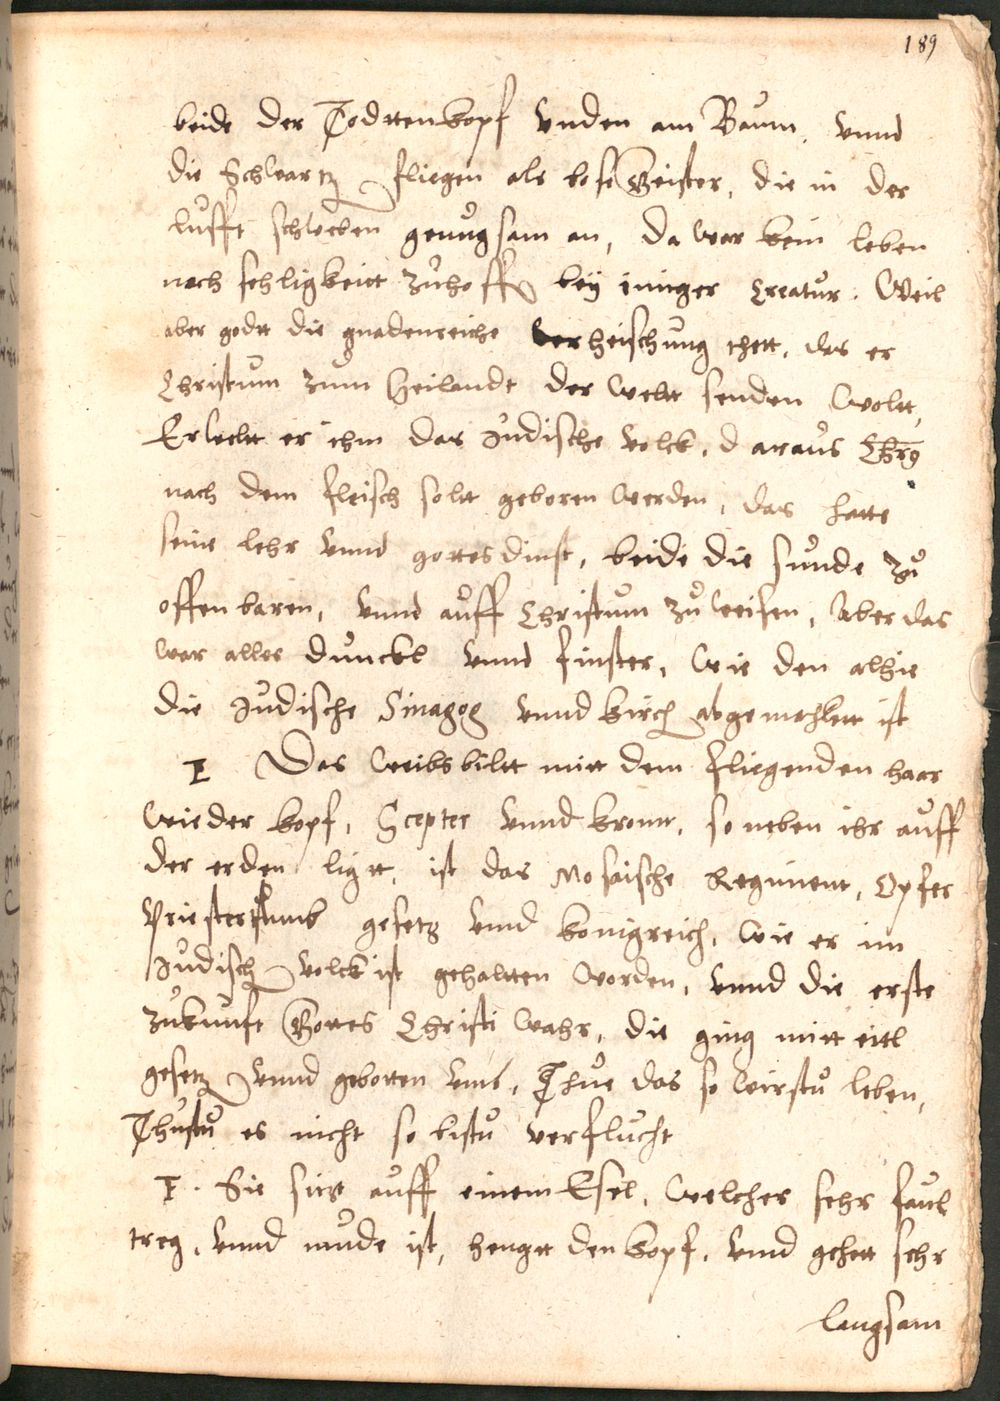 189
beide der Todttenkopf vnden am Baum, vnnd
die Schwartz fliegen als bose Geister, die in der
lufft schweben genugsam an, da war kein leben
noch sehligkeitt zuhoffen beÿ einiger Creatur. Weil
aber godtt die gnadenreiche verheischung thett, das er
Christum zum Heilandt der weltt senden woltt,
Erweltt er ihm das Iudische volck, daraus Chrs
nach dem fleisch soltt geboren werden, das hatte
seine lehr vnnd gottesdinst, beide die sunde zu
offenbaren, vnnd auff Christum zu weisen, Aber das
war alles dunckel vnnd finster, wie den alhie
die Iudische Sinagog vnnd kirch abgemahlett ist
Das weibsbildt mitt dem fliegenden haar
wieder kopf, Scepter vnnd kronn, so neben ihr auff
der erden ligtt, ist das Mosaische Regiment, Opfer
Priesterthumb gesetz vnnd konigreich, wie er im
Iudisch volck ist gehaltten worden, vnnd die erste
zukunft Gottes Christi wahr, die ging mitt eitl
gesetz vnnd gebotten vmb, Thue das so wirstu leben,
Thustu es nicht so bistu verflucht
Sie sitzt auff einem Esel, welcher sehr faul
treg, vnnd mude ist, hengtt den kopf, vnnd gehett sehr
langsam